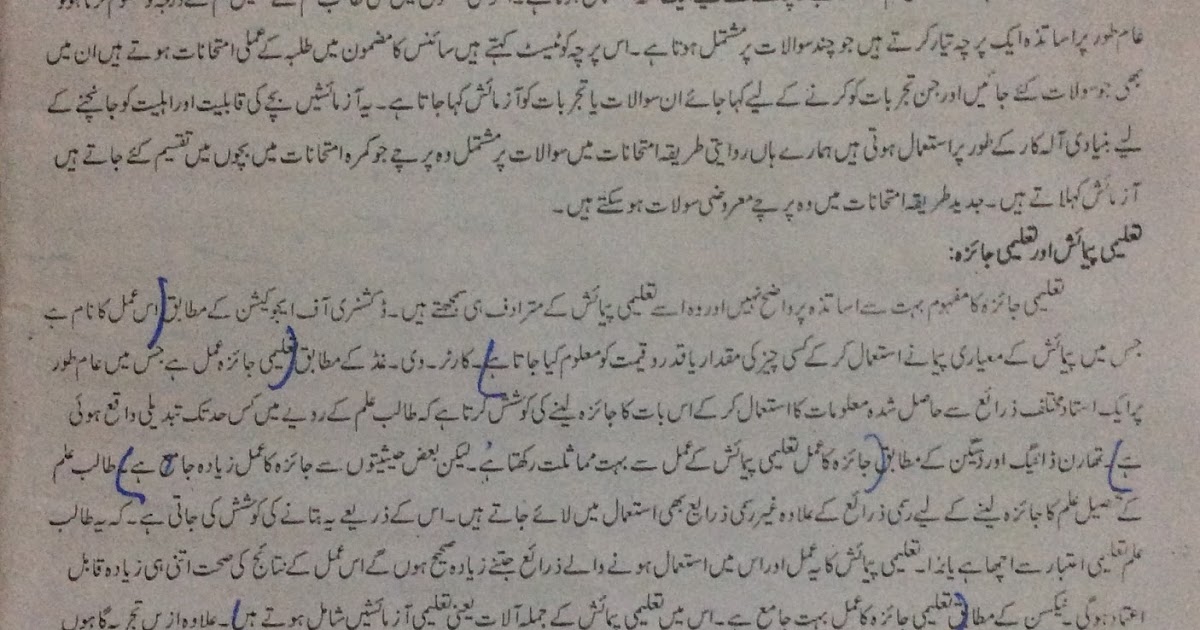 عام طور پر اساتذہ ایک پرچہ تیار کرتے ہیں جو چند سوالات پر مشتمل ہوتا ہے۔ اس پرچہ کو ٹیسٹ کہتے ہیں سائنس کا مضمون میں طلبہ کے عملی امتحانات ہوتے ہیں ان میں
بھی جو سولات کئے جائیں اور جن تجربات کو کرنے کے لیے کہا جائے ان سوالات یا تجربات کو آزمائش کہا جاتا ہے۔ یہ آزمائشیں بچے کی قابلیت اور اہلیت کو جانچنے کے
لیے بنیادی آلہ کار کے طور پر استعمال ہوتی ہیں ہمارے ہاں روایتی طریقہ امتحانات میں سوالات پر مشتمل وہ پرچے جو کمرہ امتحانات میں بچوں میں تقسیم کئے جاتے ہیں
آزمائش کہلاتے ہیں۔ جدید طریقہ امتحانات میں وہ پرچے معروضی سولات ہو سکتے ہیں۔
تعلیمی پیمائش اور تعلیمی جائزہ:
تعلیمی جائزہ کا مفہوم بہت سے اساتذہ پر واضح نہیں اور وہ اسے تعلیمی پیمائش کے مترادف ہی سمجھتے ہیں۔ ڈکشنری آف ایجوکیشن کے مطابق اس عمل کا نام ہے
جس میں پیمائش کے معیاری پیمانے استعمال کر کے کسی چیز کی مقدار یا قدر و قیمت کو معلوم کیا جاتا ہے۔ کارٹر۔ وی۔ غڈ کے مطابق تعلیمی جائزہ عمل ہے جس میں عام طور
پر ایک استاد مختلف ذرائع سے حاصل شدہ معلومات کا استعمال کر کے اس بات کا جائزہ لینے کی کوشش کرتا ہے کہ طالب علم کے رویے میں کس حد تک تبدیلی واقع ہوئی
ہے۔ تھارن ڈائیک اور ہیگن کے مطابق جائزہ کا عمل تعلیمی پیمائش کے عمل سے بہت مماثلت رکھتا ہے۔ لیکن بعض حیثیتوں سے جائزہ کا عمل زیادہ جامع ہے۔ طالب علم
کے تحصیل علم کا جائزہ لینے کے لیے رسمی ذرائع کے علاوہ غیر رسمی ذرایع بھی استعمال میں لائے جاتے ہیں۔ اس کے ذریعے یہ بتانے کی کوشش کی جاتی ہے۔ کہ یہ طالب
علم تعلیمی اعتبار سے اچھا ہے یا نذا۔ تعلیمی پیمائش کا یہ عمل اور اس میں استعمال ہونے والے ذرائع جتنے زیادہ صحیح ہوں گے اس عمل کے نتائج کی صحت اتنی ہی زیادہ قابل
اعتماد ہوگی۔ کے مطابق تعلیمی جائزہ کا عمل بہت جامع ہے۔ اس میں تعلیمی پیمائش کے جملہ آلات یعنی تعلیمی آزمائشیں شامل ہوتے ہیں۔ علاوہ ازیں تجربہ گاہوں